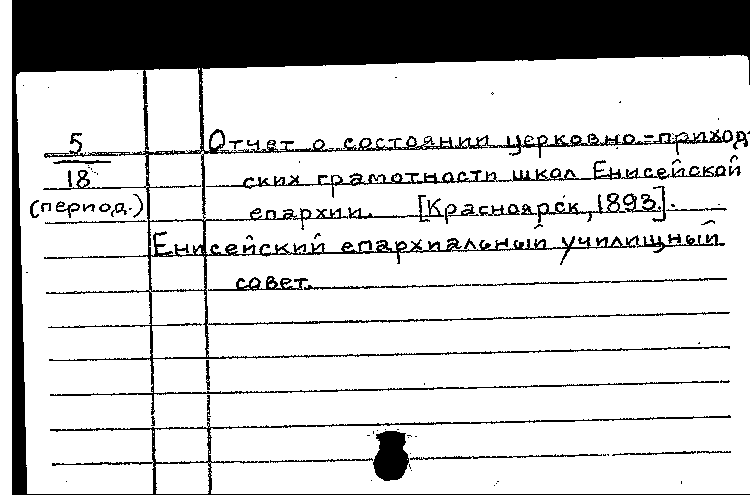 5
Отчет о состоянии церковно-приход-
18
ских грамотности школ Енисейской
(период.)
епархии. [Красноярск, 1893.].
Енисейский епархиальный училищный
совет.